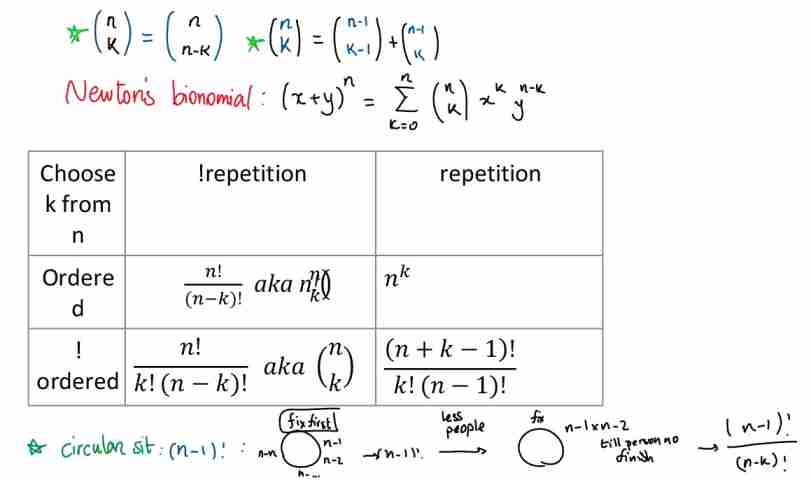 ★ (n K) = (n n-K) ★ (n K) = (n-1 K-1) + (n-1 K)
Newton's bionomial: (x+y)^n = Σ_{K=0}^{n} (n K) x^K y^{n-K}
Choose k from n | !repetition | repetition
Ordered | n!/(n−k)! aka | n^k
! ordered | n!/(k!(n−k)!) aka (n k) | (n+k−1)!/(k!(n−1)!)
★ circular sit: (n-1)! : fix first n-1 n-2 n-... n-n → (n-1)! less people → fix n-1 x n-2 till person no finish → (n-1)!/(n-k)!